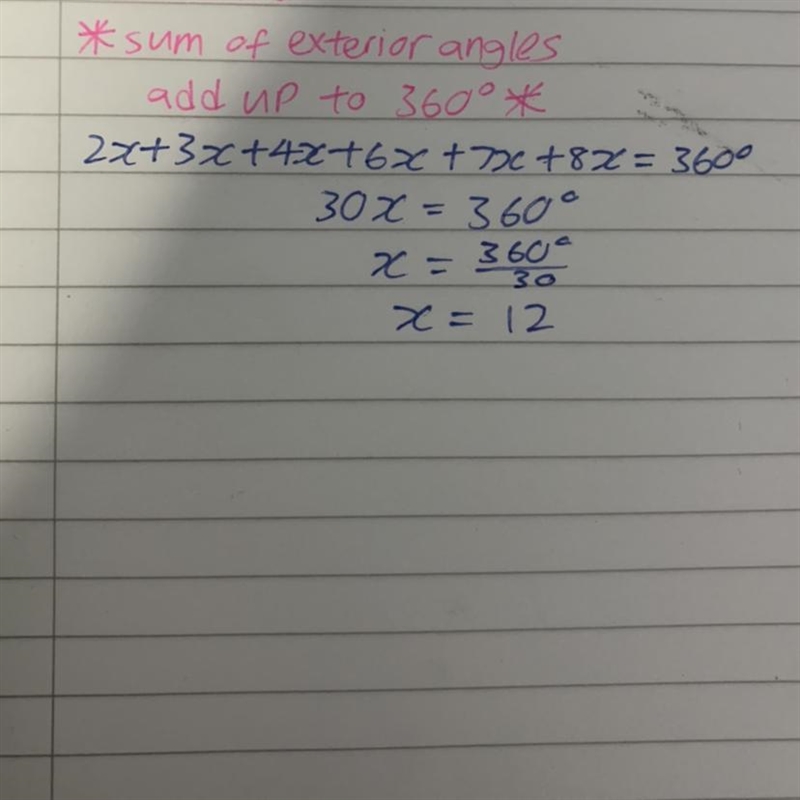 *sum of exterior angles
add up to 360°*
2x+3x+4x+6x+7x+8x=360°
30x = 360°
x = 360°/30
x = 12